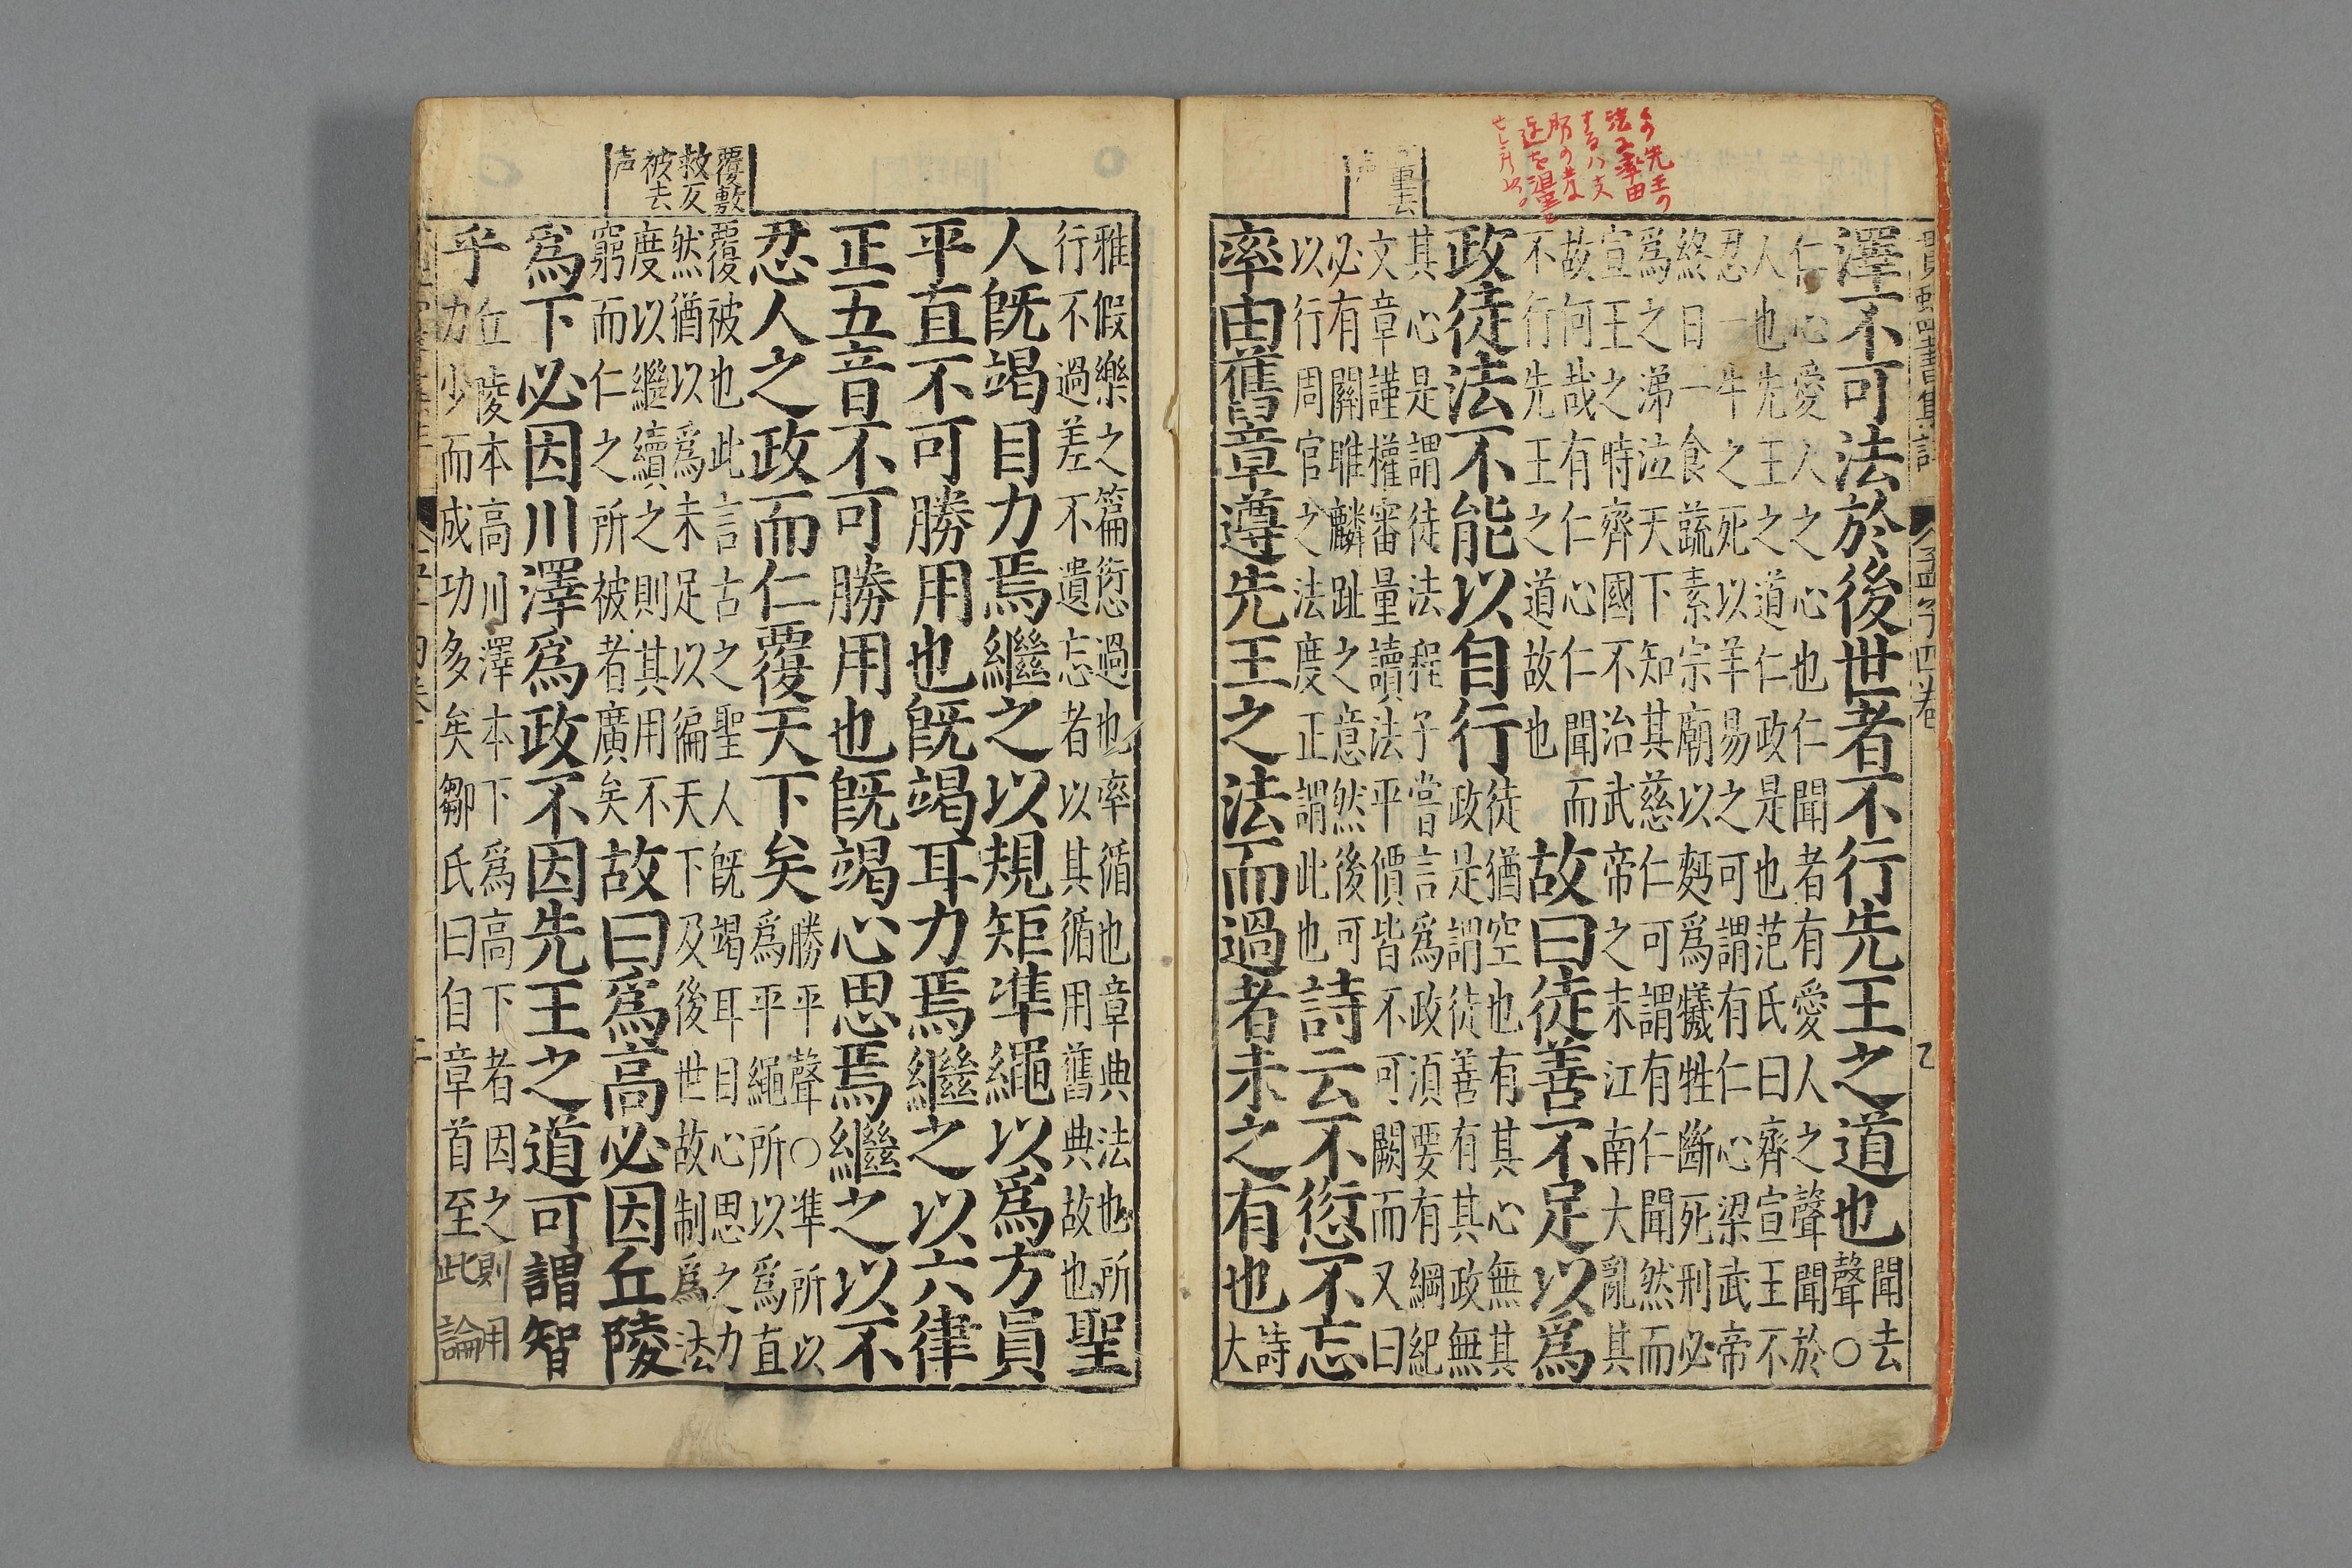 孟子四卷
澤不可法於後世者不行先王之道也聞去
聲〇
仁心愛人之心也仁聞者有愛人之聲聞於
人也先王之道仁政是也范氏曰齊宣王不
忍一牛之死以羊易之可謂有仁心梁武帝
終日一食蔬素宗廟以麪爲犧牲斷死刑必
爲之涕泣天下知其慈仁可謂有仁聞然而
宣王之時齊國不治武帝之末江南大亂其
故何哉有仁心仁聞而
不行先王之道故也
故曰徒善不足以爲
政徒法不能以自行
徒猶空也有其心無其
政是謂徒善有其政無
其心是謂徒法程子嘗言爲政須要有綱紀
文章謹權審量讀法平價皆不可闕而又曰
必有關雎麟趾之意然後可
以行周官之法度正謂此也
詩云不愆不忘
率由舊章遵先王之法而過者未之有也
詩
大
重去
声
雅假樂之篇愆過也率循也章典法也所
行不過差不遺忘者以其循用舊典故也
聖
人既竭目力焉繼之以規矩凖繩以爲方員
平直不可勝用也既竭耳力焉繼之以六律
正五音不可勝用也既竭心思焉繼之以不
忍人之政而仁覆天下矣
勝平聲〇凖所以
爲平繩所以爲直
覆被也此言古之聖人既竭耳目心思之力
然猶以爲未足以徧天下及後世故制爲法
度以繼續之則其用不
窮而仁之所被者廣矣
故曰爲高必因丘陵
爲下必因川澤爲政不因先王之道可謂智
乎
丘陵本高川澤本下爲高下者因之則用
力少而成功多矣鄒氏曰自章首至此論
覆敷
救反
被去
声